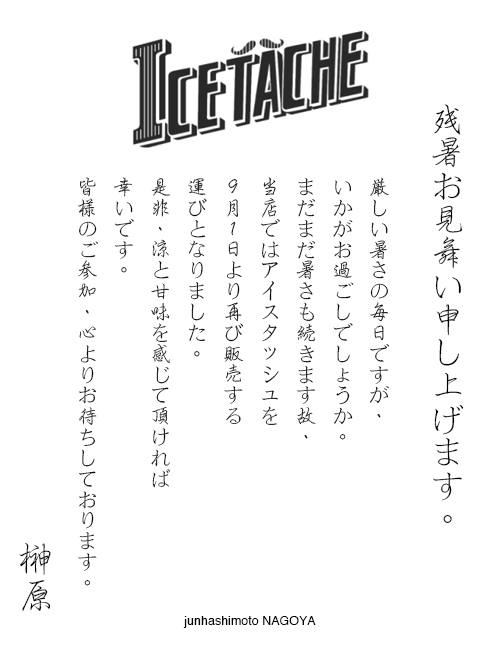 ICETACHE
残暑お見舞い申し上げます。
厳しい暑さの毎日ですが、
いかがお過ごしでしょうか。
まだまだ暑さも続きます故、
当店ではアイスタッシュを
9月1日より再び販売する
運びとなりました。
是非、涼と甘味を感じて頂ければ
幸いです。
皆様のご参加、心よりお待ちしております。
榊原
junhashimoto NAGOYA